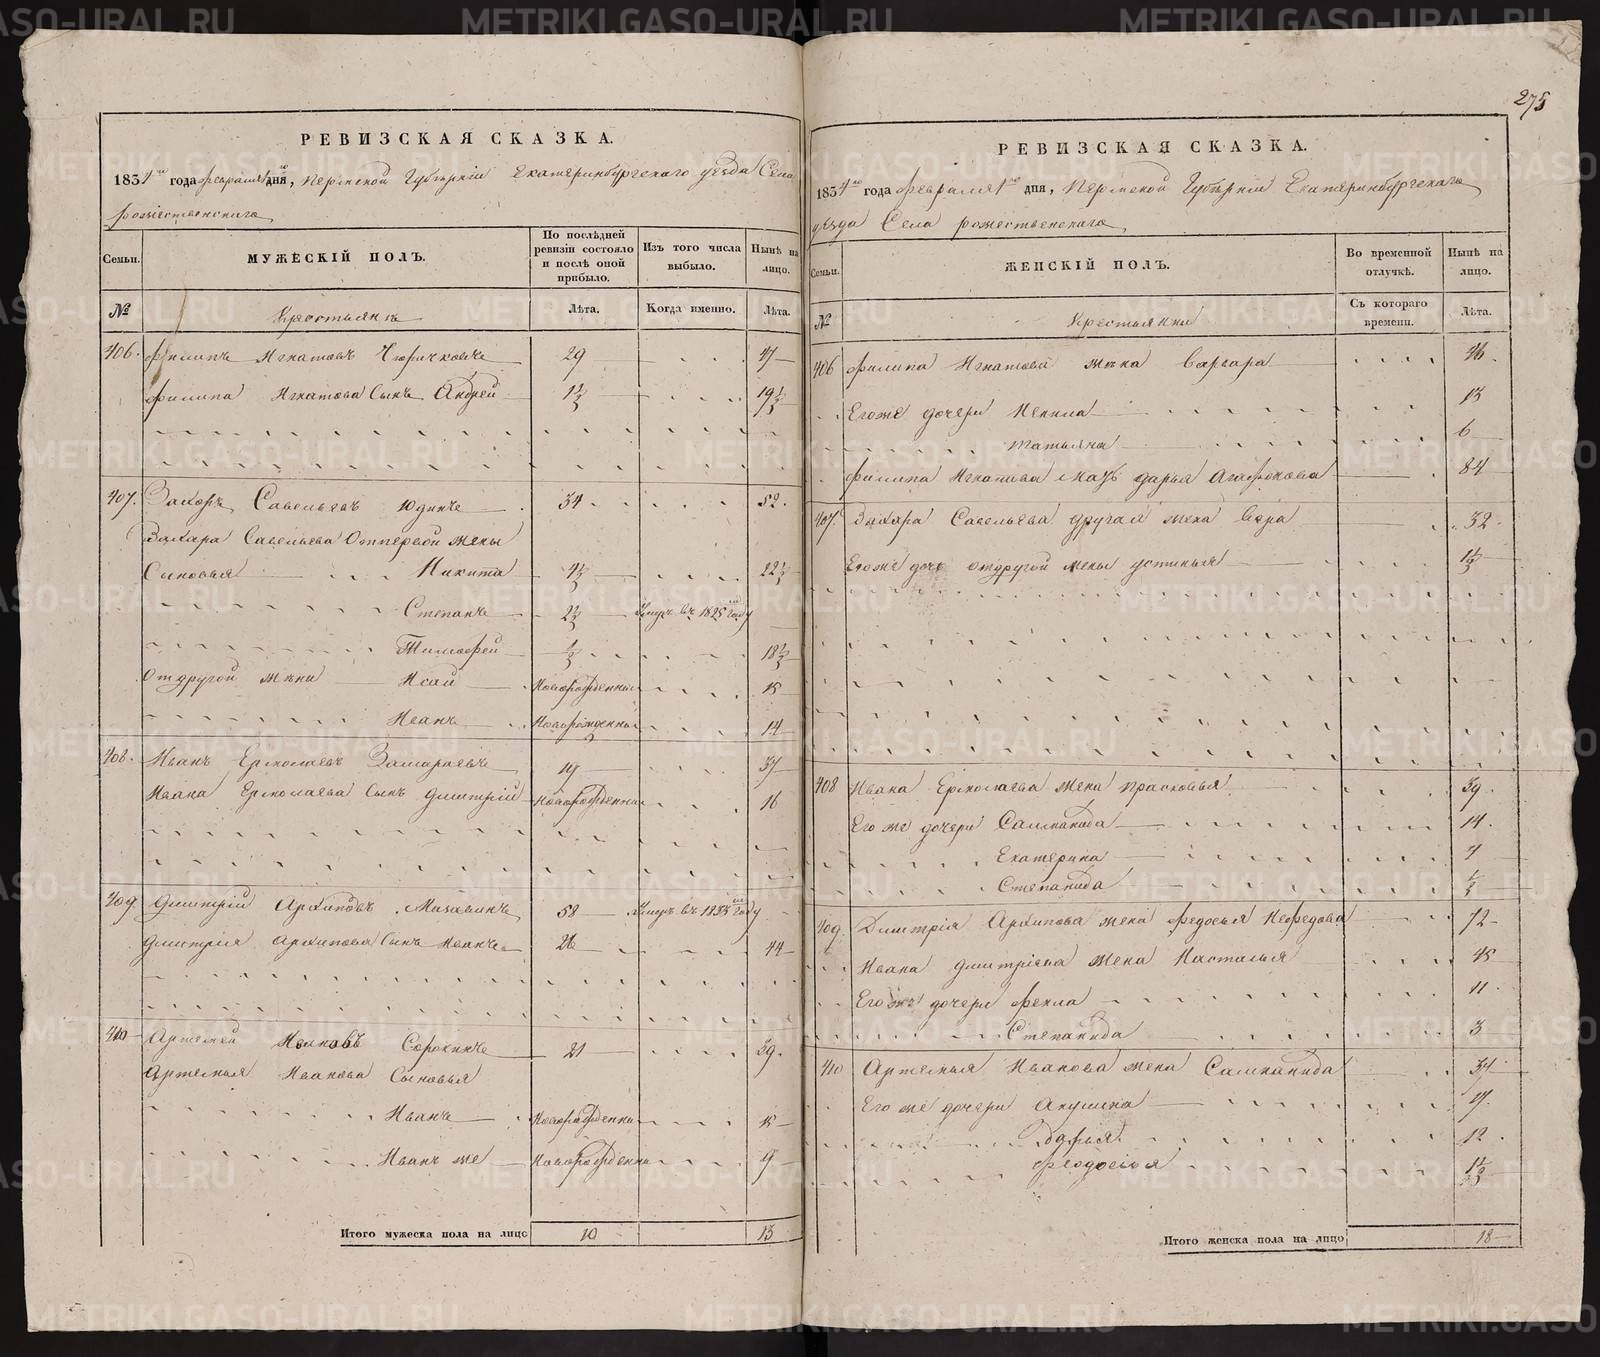 275
РЕВИЗСКАЯ СКАЗКА.
1834го года февраля 1го дня, Пермской Губернiи Екатеринбургскаго уезда Села
рожественскаго
Семьи. МУЖЕСКIЙ ПОЛЪ. По послѣдней ревизiи состояло и послѣ оной прибыло. Изъ того числа выбыло. Нынѣ на лицо.
№ Крестьянъ Лѣта. Когда именно. Лѣта.
406. Филипъ Игнатовъ 29 47
Филипа Игнатова Сынъ Андрей 1½ 19½
407. Захаръ Савельевъ Юдинъ 34 52.
Захара Савельева Отпервой жены
Сыновья Никита 4½ 22½
Степанъ 2½ Умеръ въ 1825м году
Тимофей ½ 18½
Отдругой жены Исай Новорожденный 15
Иванъ Новорожденный 14
408. Иванъ Ермолаевъ Замараевъ 19 37
Ивана Ермолаева Сынъ Дмитрiй Новорожденный 16
409 Дмитрiй Архиповъ 58 Умеръ въ 1833м году
Дмитрiя Архипова Сынъ Иванъ 26 44
410 Артемей Ивановъ Сорокинъ 21 39.
Артемья Иванова Сыновья
Иванъ Новорожденный 15
Иванъ же Новорожденный 9
Итого мужеска пола на лицо 10 13
РЕВИЗСКАЯ СКАЗКА.
1834го года февраля 1го дня, Пермской Губернiи Екатеринбургскаго
уезда Села рожественскаго
Семьи. ЖЕНСКIЙ ПОЛЪ. Во временной отлучкѣ. Нынѣ на лицо.
№ Крестьянки Съ котораго времени. Лѣта.
406 Филипа Игнатова жена Варвара 46.
Егоже дочери Ненила 13
Татьяна 6
Филипа Игнатова мать дарья Агафонова 84
407. Захара Савельева другая жена Вера 32.
Егоже дочь отдругой жены устинья 1½
408 Ивана Ермолаева жена прасковья 39.
Его же дочери Саломанида 14.
Екатерина 7
Степанида ½
409. Дмитрiя Архипова жена федосья Нефедова 72
Ивана дмитрiева жена Насталья 45
Его же дочери фекла 11.
Степанида 3
410 Артемья Иванова жена Саломанида 37
Его же дочери Акулина 17.
Дарья 12.
Феодосiя 1½
Итого женска пола на лицо 18
METRIKI.GASO-URAL.RU